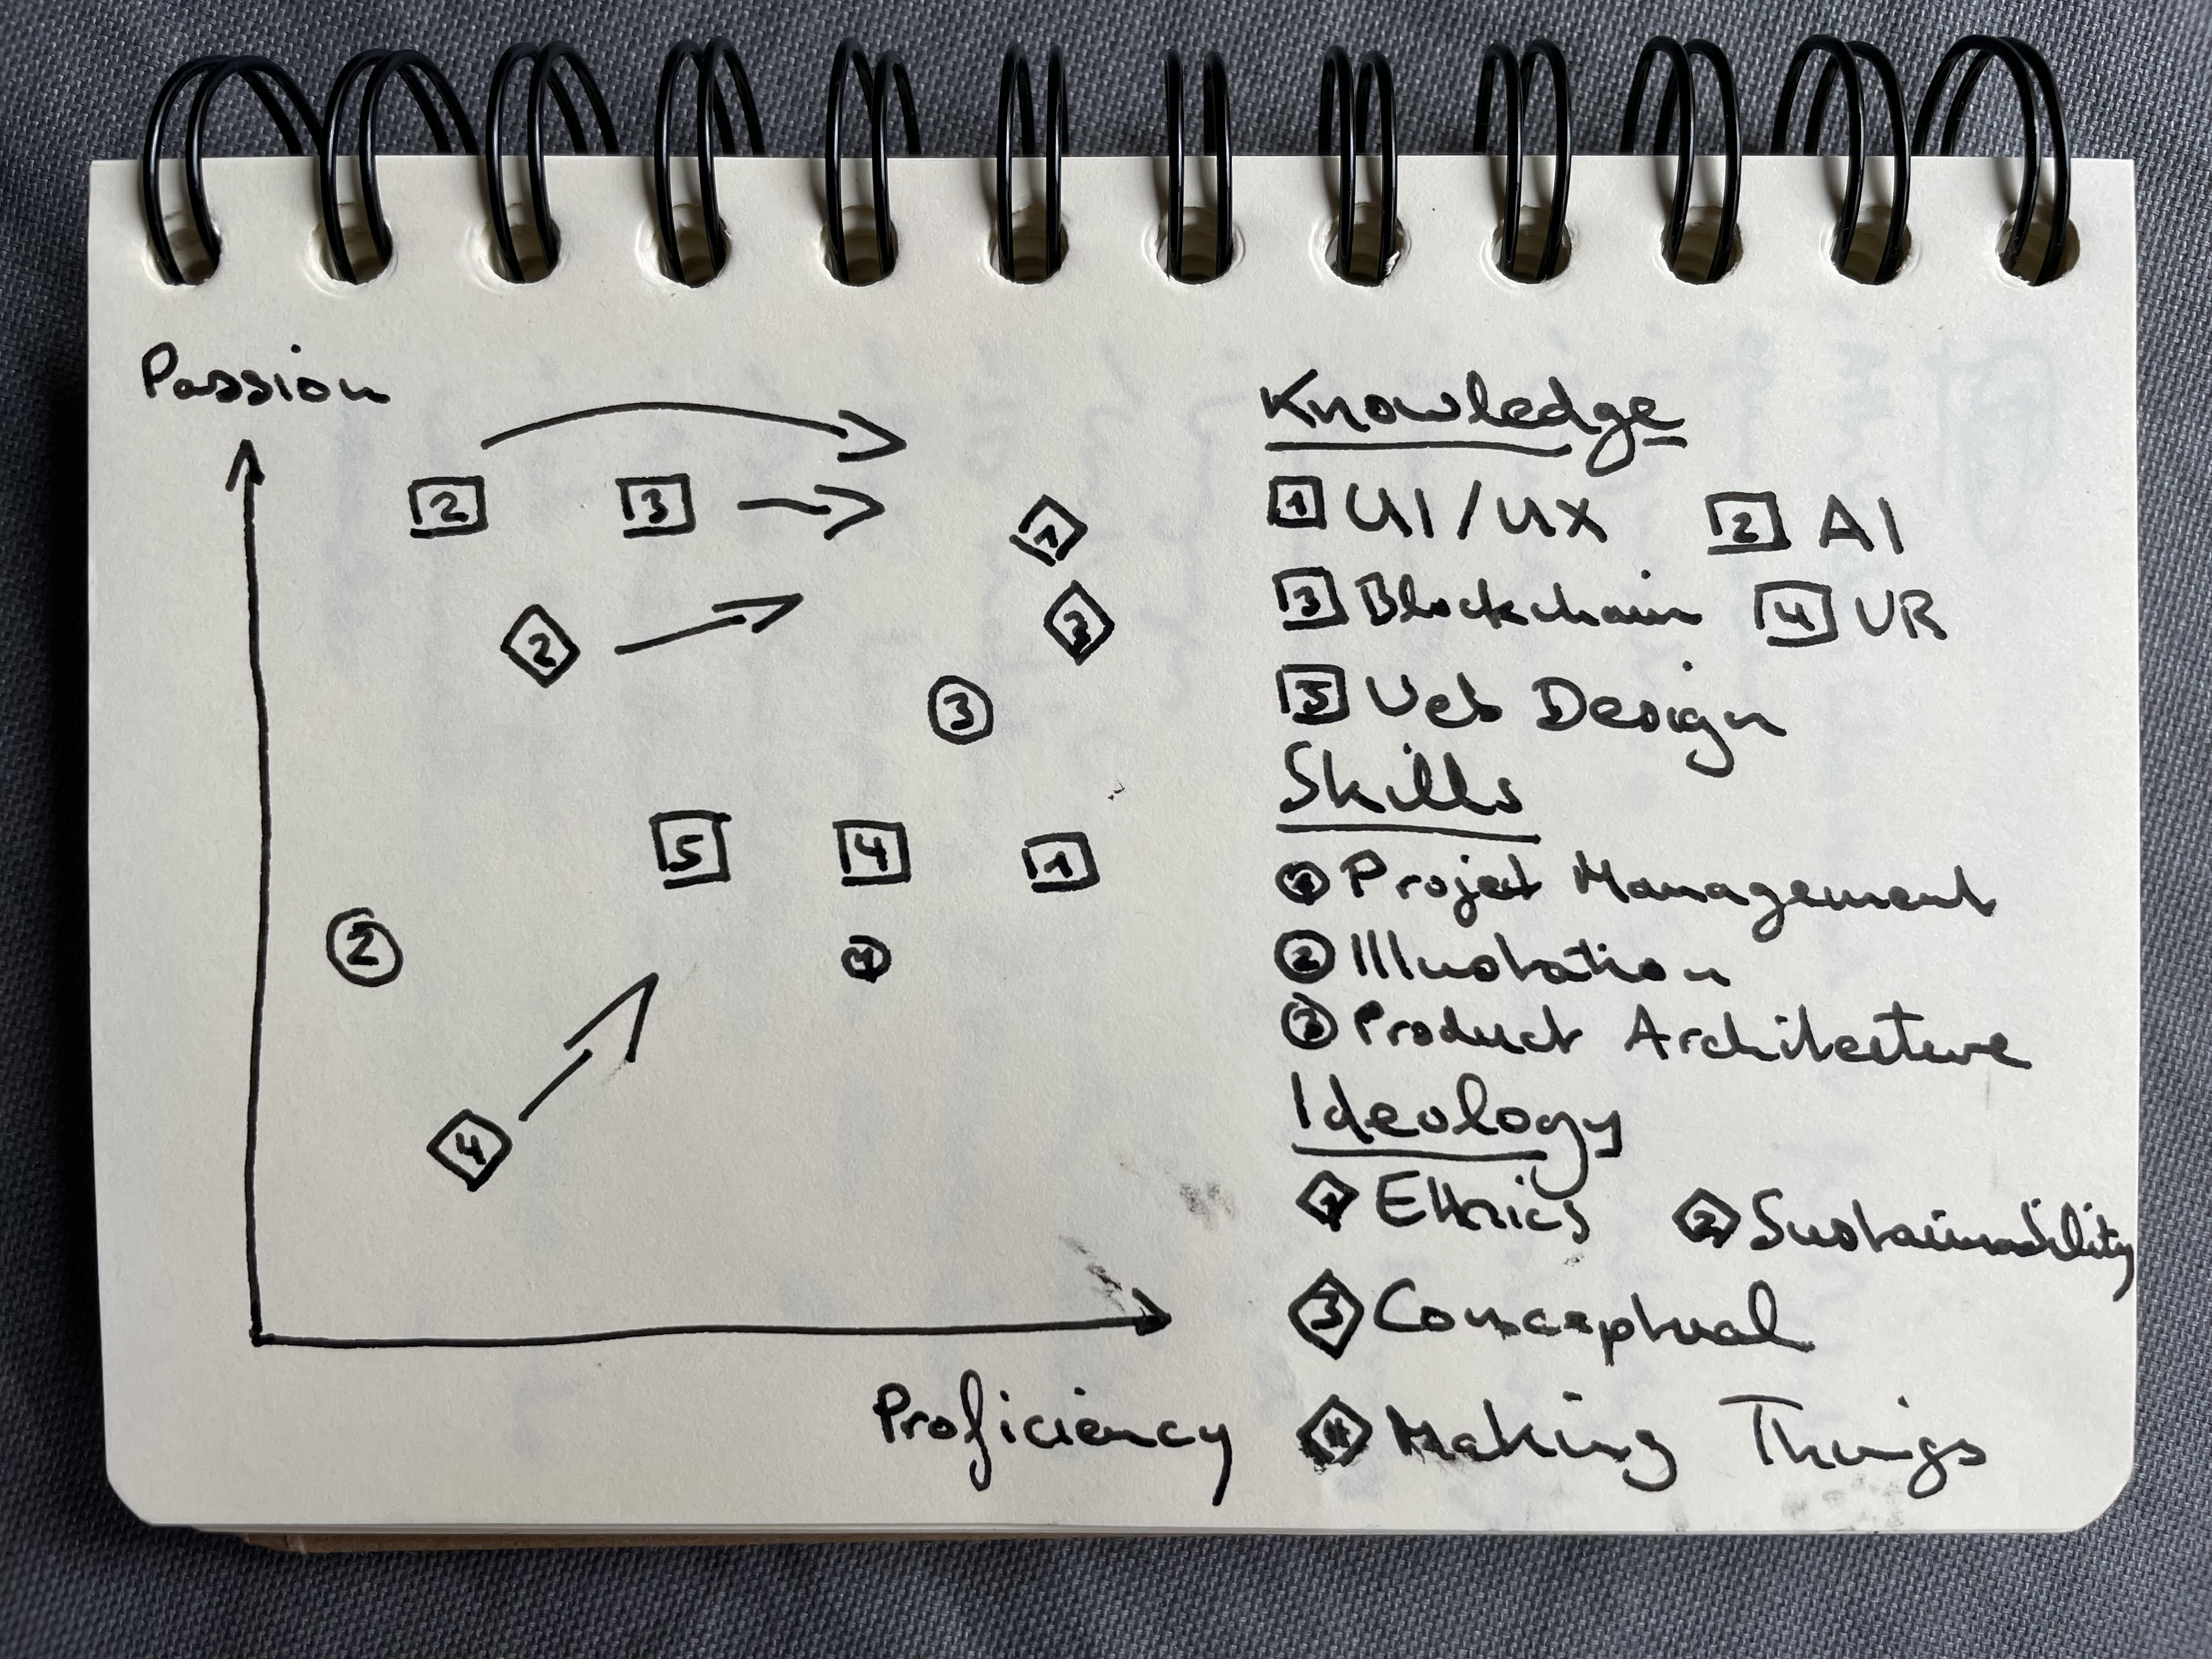 Passion
2 3
1
2
3
3
5 4 1
2 1
4
Proficiency
Knowledge
1 UI/UX 2 AI
3 Blockchain 4 VR
5 Web Design
Skills
1 Project Management
2 Illustration
3 Product Architecture
Ideology
1 Ethics 2 Sustainability
3 Conceptual
4 Making Things